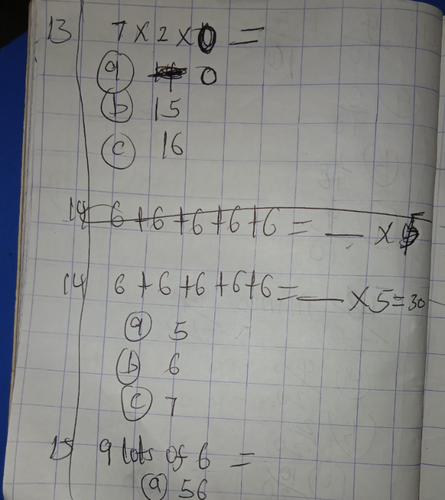 13 7 x 2 x 0 =
(a) 0
(b) 15
(c) 16
14 6+6+6+6+6 = __ x
14 6+6+6+6+6=__ x 5=30
(a) 5
(b) 6
(c) 7
15 9 lots of 6 =
(a) 56